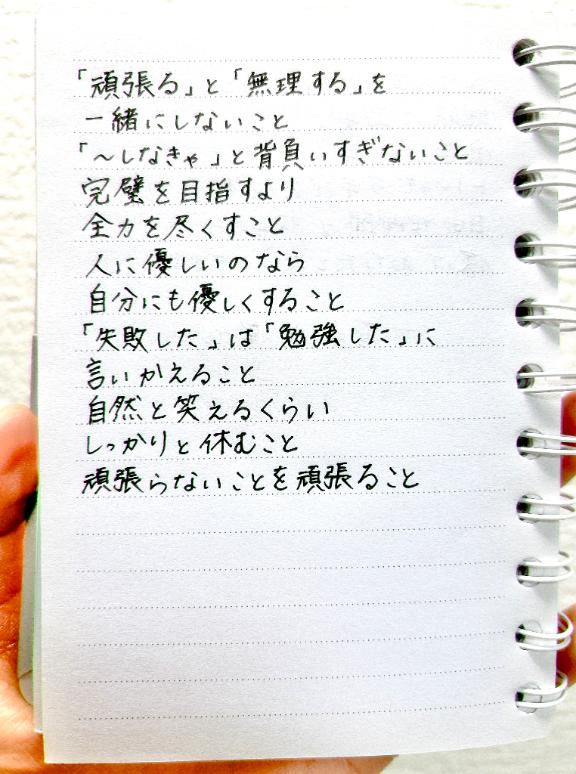 「頑張る」と「無理する」を
一緒にしないこと
「～しなきゃ」と背負いすぎないこと
完璧を目指すより
全力を尽くすこと
人に優しいのなら
自分にも優しくすること
「失敗した」は「勉強した」に
言いかえること
自然と笑えるくらい
しっかりと休むこと
頑張らないことを頑張ること